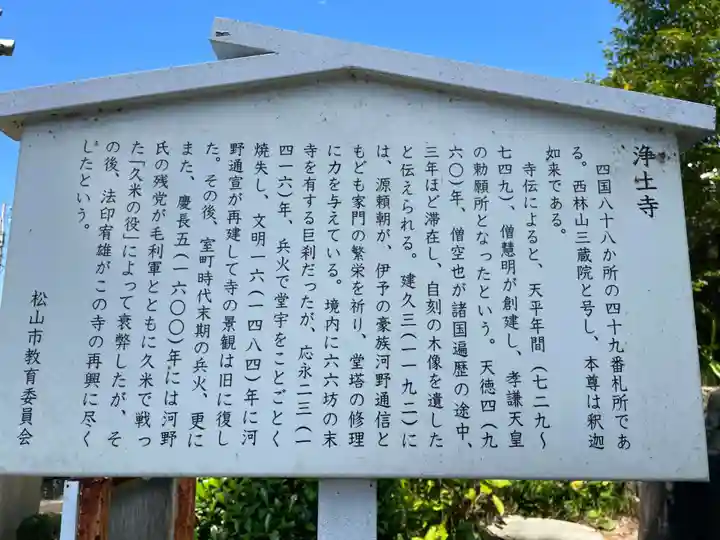 浄土寺
四国八十八か所の四十九番札所であ
る。西林山三蔵院と号し、本尊は釈迦
如来である。
寺伝によると、天平年間（七二九～
七四九）、僧慧明が創建し、孝謙天皇
の勅願所となったという。天徳四（九
六〇）年、僧空也が諸国遍歴の途中、
三年ほど滞在し、自刻の木像を遺した
と伝えられる。建久三（一一九二）に
は、源頼朝が、伊予の豪族河野通信と
もども家門の繁栄を祈り、堂塔の修理
に力を与えている。境内に六六坊の末
寺を有する巨刹だったが、応永二三（一
四一六）年、兵火で堂宇をことごとく
焼失し、文明一六（一四八四）年に河
野通宣が再建して寺の景観は旧に復し
た。その後、室町時代末期の兵火、更に
また、慶長五（一六〇〇）年には河野
氏の残党が毛利軍とともに久米で戦っ
た「久米の役」によって衰弊したが、そ
の後、法印宥雄がこの寺の再興に尽く
したという。
松山市教育委員会